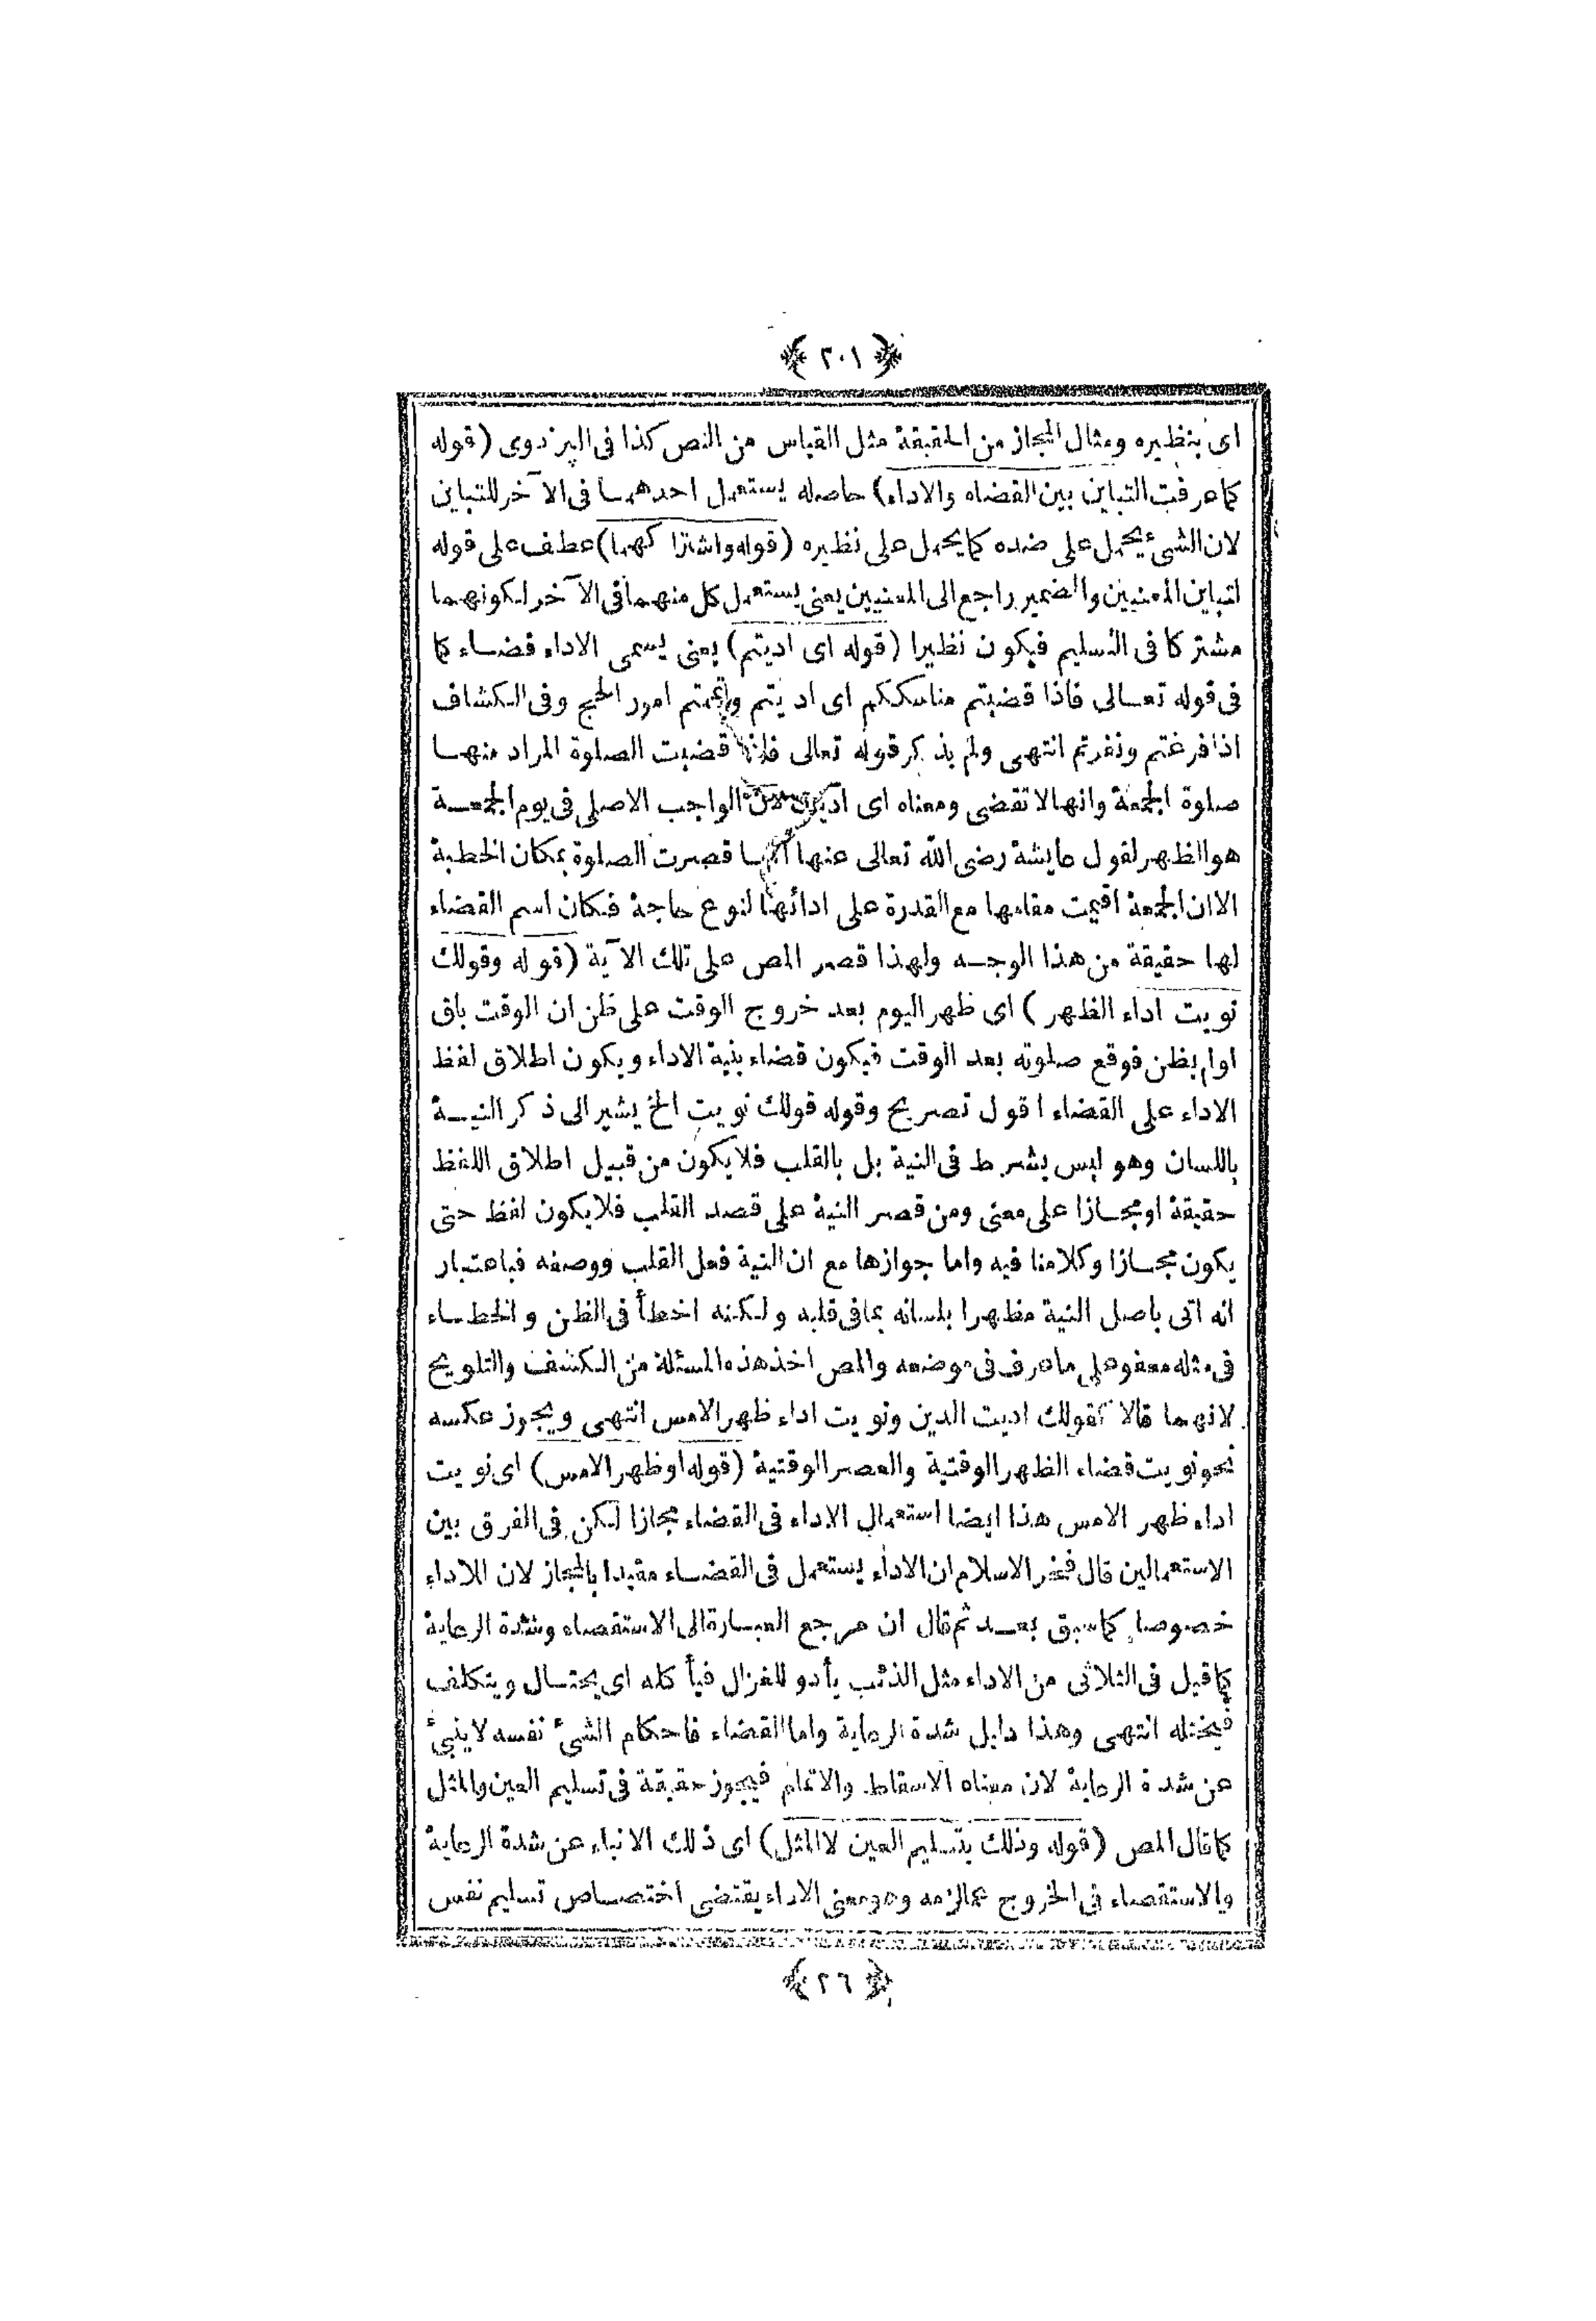 ﴿ ٢٠١ ﴾
اى بنظيره ومثال المجاز من الحقيقة مثل القياس من النص كذا فى البزدوى (قوله
كما عرفت التباين بين القضاء والاداء) حاصله يستعمل احدهما فى الآخر للتباين
لان الشئ يحمل على ضده كما يحمل على نظيره (قوله واشتراكهما) عطف على قوله
لتباين المعنيين والضمير راجع الى المعنيين يعنى يستعمل كل منهما فى الآخر لكونهما
مشتركا فى التسليم فيكون نظيرا (قوله اى اديتم) يعنى يسمى الاداء قضاء كما
فى قوله تعالى فاذا قضيتم مناسككم اى اديتم واتممتم امور الحج وفى الكشاف
اذا فرغتم ونفرتم انتهى ولم يذكر قوله تعالى فاذا قضيت الصلوة المراد منها
صلوة الجمعة وانها لا تقضى ومعناه اى اديت لان الواجب الاصلى فى يوم الجمعة
هو الظهر لقول عايشة رضى الله تعالى عنها انما قصرت الصلوة بمكان الخطبة
الا ان الجمعة اقيمت مقامها مع القدرة على ادائها لنوع حاجة فكان اسم القضاء
لها حقيقة من هذا الوجه ولهذا قصر المص على تلك الآية (قوله وقولك
نويت اداء الظهر) اى ظهر اليوم بعد خروج الوقت على ظن ان الوقت باق
اولم يظن فوقع صلوته بعد الوقت فيكون قضاء بنية الاداء ويكون اطلاق لفظ
الاداء على القضاء اقول تصريح وقوله قولك نويت الخ يشير الى ذكر النية
باللسان وهو ليس بشرط فى النية بل بالقلب فلا يكون من قبيل اطلاق اللفظ
حقيقة او مجازا على معنى ومن قصر النية على قصد القلب فلا يكون لفظ حتى
يكون مجازا وكلامنا فيه واما جوازها مع ان النية فعل القلب ووصفه فباعتبار
انه اتى باصل النية مظهرا بلسانه بما فى قلبه ولكنه اخطأ فى الظن والخطاء
فى مثله معفو على ما عرف فى موضعه والمص اخذ هذه المسئلة من الكشف والتلويح
لانهما قالا كقولك اديت الدين ونويت اداء ظهر الامس انتهى ويجوز عكسه
نحو نويت قضاء الظهر الوقتية والعصر الوقتية (قوله او ظهر الامس) اى نويت
اداء ظهر الامس هذا ايضا استعمال الاداء فى القضاء مجازا لكن فى الفرق بين
الاستعمالين قال فخر الاسلام ان الاداء يستعمل فى القضاء مقيدا بالمجاز لان للاداء
خصوصا كما سبق بعد ثم قال ان مرجع العبارة الى الاستقصاء وشدة الرعاية
كما قيل فى الثلاثى من الاداء مثل الذئب يأدو للغزال فيأكله اى يحتال ويتكلف
فيختله انتهى وهذا دليل شدة الرعاية واما القضاء فاحكام الشئ نفسه لا ينبئ
عن شدة الرعاية لان معناه الاسقاط والاتمام فيجوز حقيقة فى تسليم العين والمثل
كما قال المص (قوله وذلك بتسليم العين لا المثل) اى ذلك الانباء عن شدة الرعاية
والاستقصاء فى الخروج عما لزمه وهو معنى الاداء يقتضى اختصاص تسليم نفس
﴿ ٢٦ ﴾